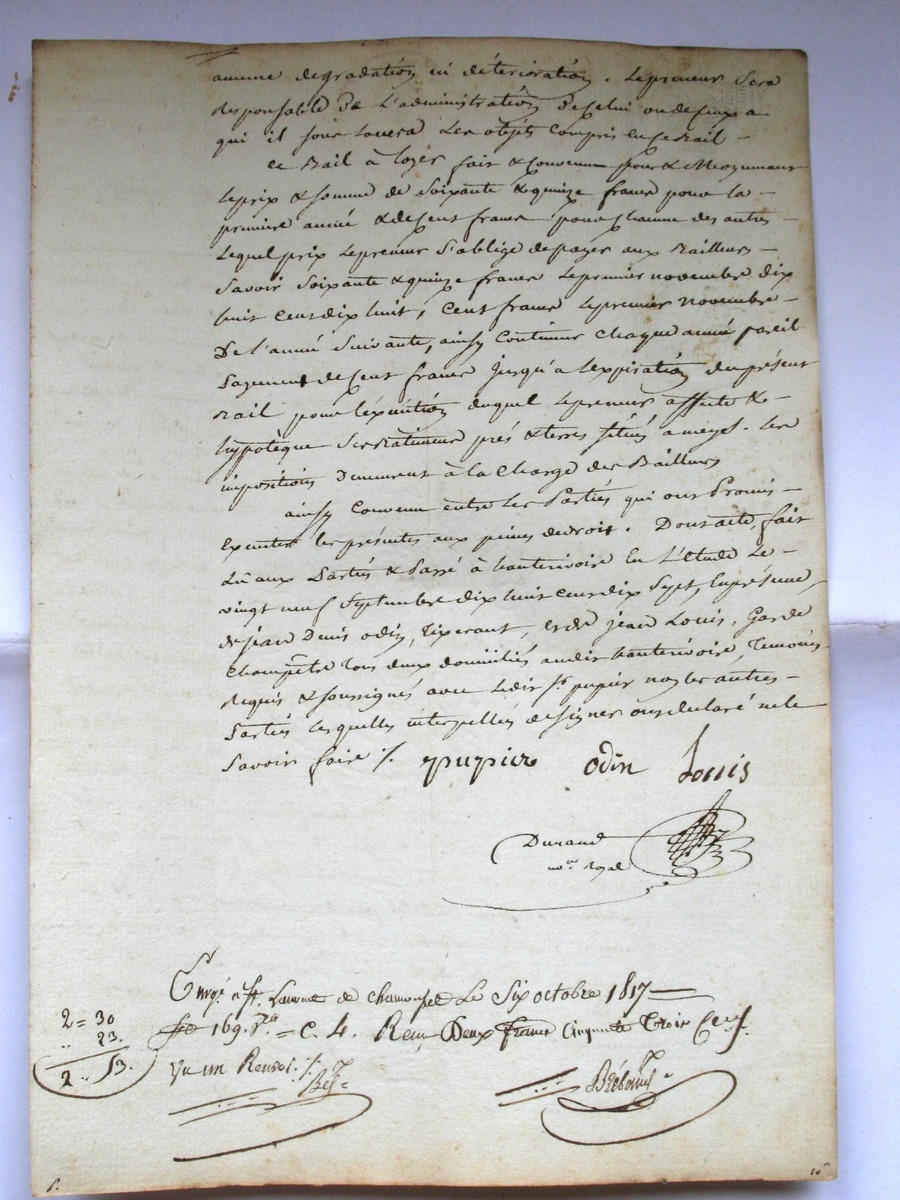 aucune degradation ni déterioration. Le preneur sera
Responsable de L'administration de celui ou de ceux a
qui il sous louera Les objets compris en ce Bail -
ce Bail à loyer fait & convenu pour & Moyennant
Le prix & somme de soixante & quinze francs pour la -
premiere année & de cent francs pour chacune des autres -
Lequel prix Le preneur s'oblige de payer aux Bailleurs -
savoir soixante & quinze francs Le premier novembre dix
huit cent dix huit, cent francs Le premier novembre -
De l'année suivante, ainsy continuer chaque année pareil
payement de cent francs jusqu'a l'expiration du présent
Bail pour l'exécution duquel Le preneur affecte & -
hypotèque ses Batiments prés & terres situés a . Les
impositions demeurent à la charge des Bailleurs
ainsy convenu entre Les Parties qui ont Promis -
Executer les présentes aux peines de droit. Dont acte, fait
Lû aux Parties & Passé à hauterivoire En L'étude Le -
vingt neuf Septembre dix huit cent dix sept, En présence
de jean Denis odin, Tixerant, et de jean Louis, Garde
champêtre Tous deux domiciliés audit hauterivoire, Temoins
Requis & soussignés avec Ledit Sr. pupier non les autres -
Parties lesquelles interpellées de signer ont déclaré ne le
savoir faire ./.   pupier   odin   Louis
Durand
nore. Royal
Enregé à St. Laurent de chamousset Le Six octobre 1817 —
fo 169. Vo = C. 4. Reçu Deux francs Cinquante Trois Ces.
2 = 30
.. 23.
2 .. 53.
Vu un Renvoi ./.